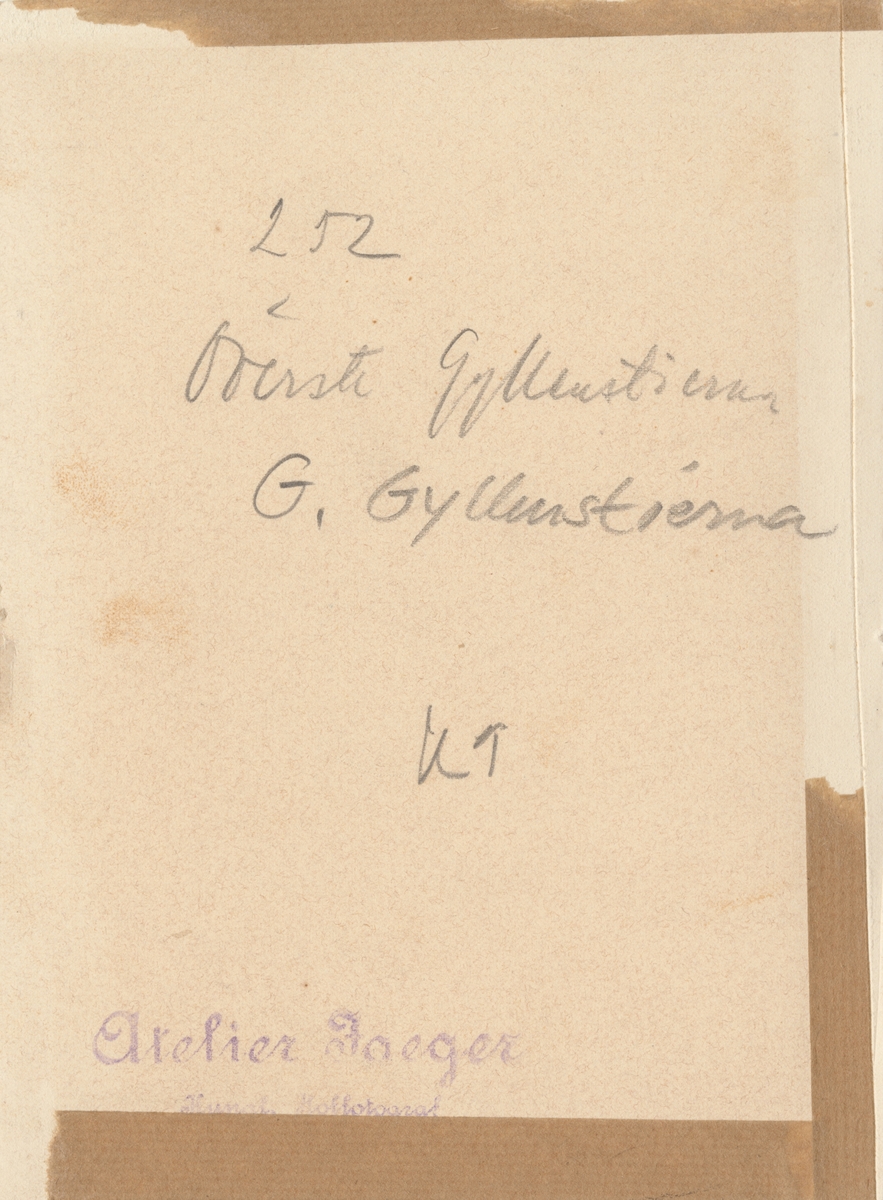 252
Överste Gyllenstierna
G. Gyllenstierna
KT
Atelier Jaeger
Kungl. Hoffotograf